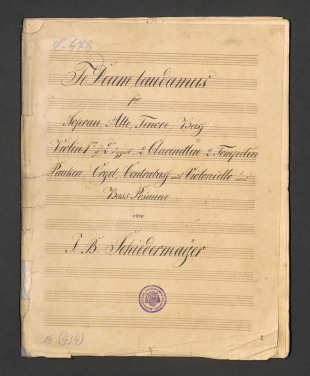 d-473
Te Deum laudamus
für
Sopran, Alto, Tenore, Bass
Violin 1mo 2 Clarinetten 2 Trompeten
Pauken Orgel Contrabass und Violoncello
Bass Posaune
von
J B Schiedermayer
16 (939)